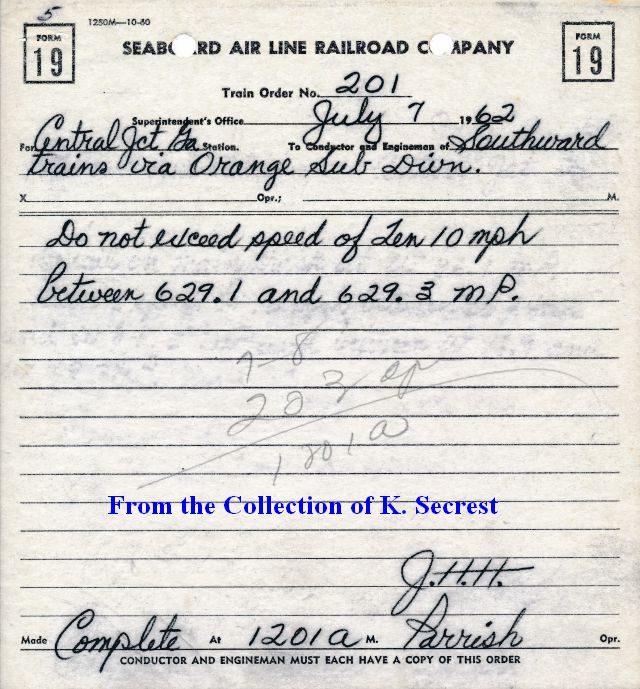 5
1250M—10-50
FORM 19
SEABOARD AIR LINE RAILROAD COMPANY
FORM 19
Train Order No. 201
Superintendent's Office July 7 1962
For Central Jct Ga Station. To Conductor and Engineman of Southward
trains via Orange Sub Divn.
X Opr.; M.
Do not exceed speed of Ten 10 mph
between 629.1 and 629.3 MP.
7-8
203 op
1201a
From the Collection of K. Secrest
J.H.H.
Made Complete At 1201a M. Parrish Opr.
CONDUCTOR AND ENGINEMAN MUST EACH HAVE A COPY OF THIS ORDER